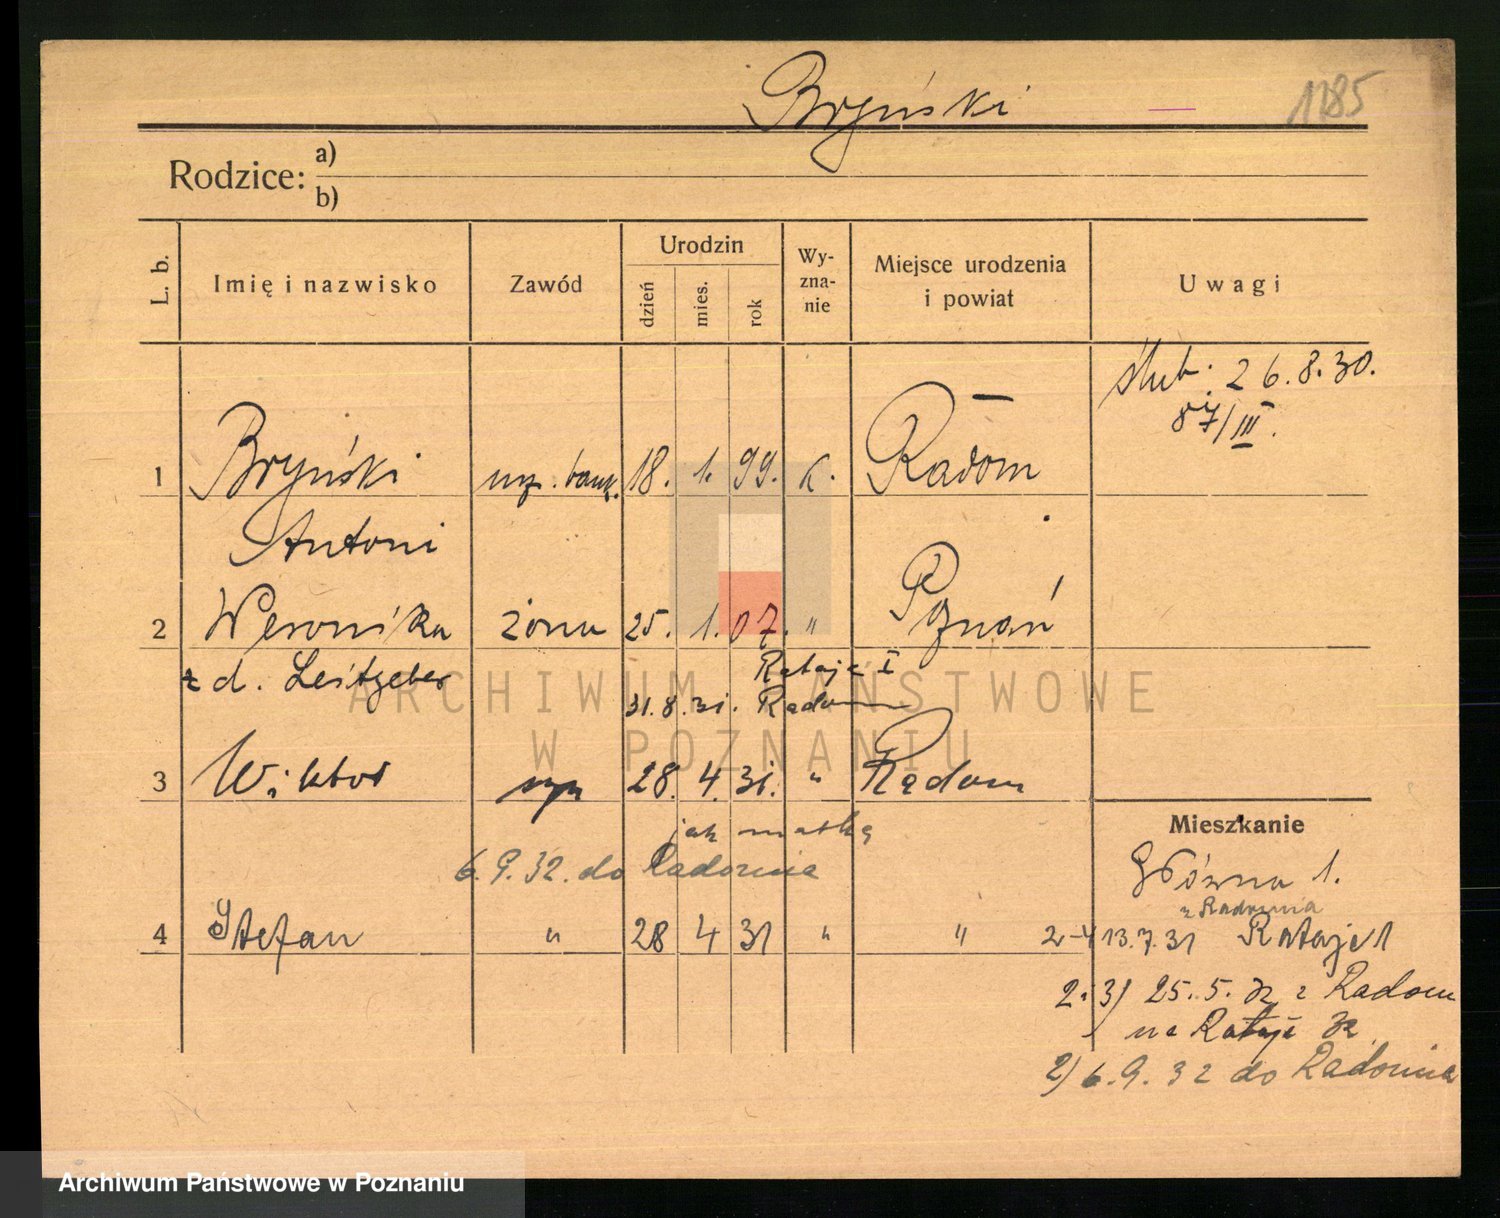 Bryński
1185
Rodzice: a)
b)
L. b. Imię i nazwisko Zawód Urodzin dzień mies. rok Wy-zna-nie Miejsce urodzenia i powiat Uwagi
ślub. 26.8.30.
87/III.
1 Bryński urz. bank. 18. 1. 99. k. Radom
Antoni
2 Weronika żona 25. 1. 07. " Poznań
z d. Leitgeber Rataje I
31.8.31. Radom
3 Wiktor syn 28. 4. 31. " Radom
jak matka
6.9.32. do Radomia
4 Stefan " 28 4 31 " "
Mieszkanie
Główna 1.
z Radomia
2-4 13.7.31 Rataje 1
2. 3) 25.5.32 z Radom
na Rataje 32
2) 6.9.32 do Radomia
ARCHIWUM PAŃSTWOWE
W POZNANIU
Archiwum Państwowe w Poznaniu